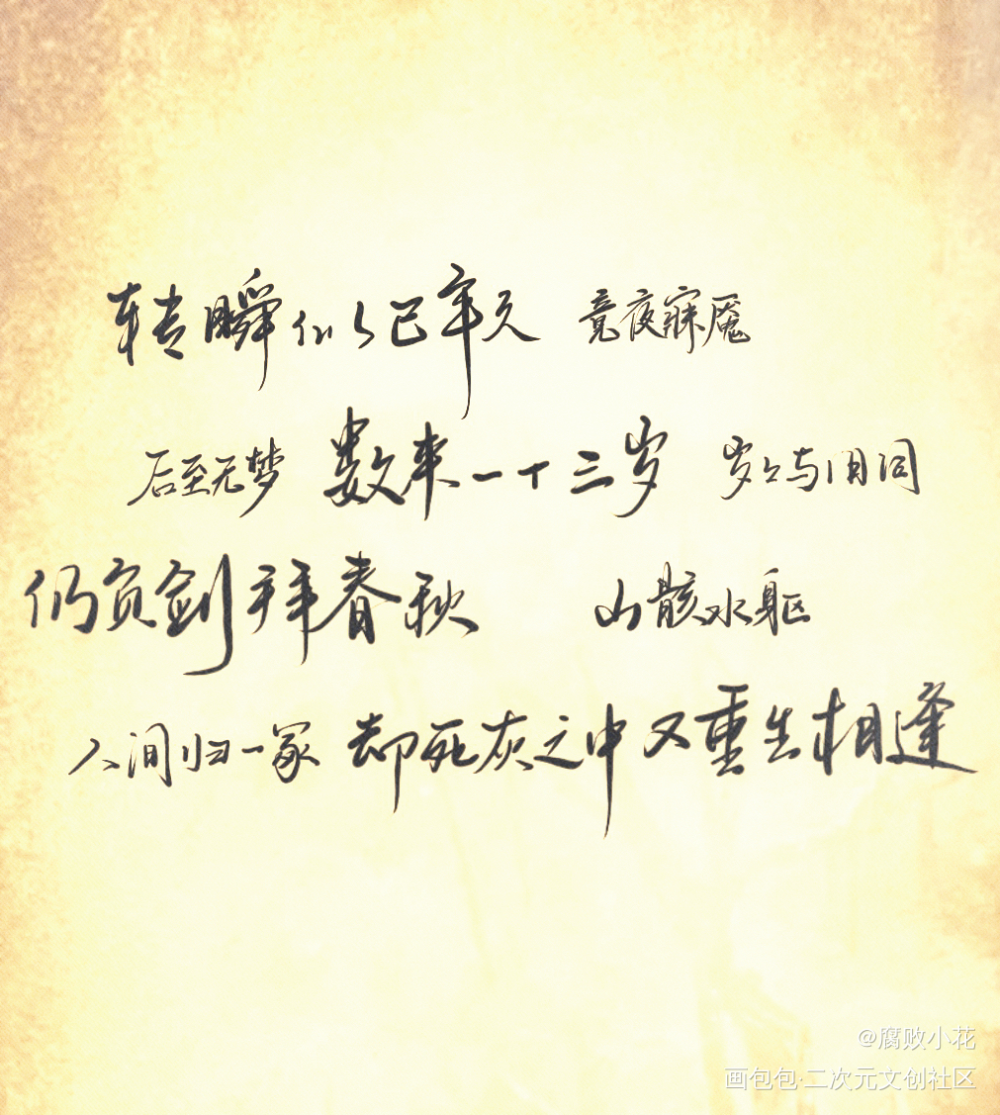 转瞬似已年久 竟夜寐魇
后至无梦 数来一十三岁 岁岁与旧同
仍负剑拜春秋 山骸水躯
人间归一冢 却死灰之中又重生相逢
@腐败小花
画包包·二次元文创社区